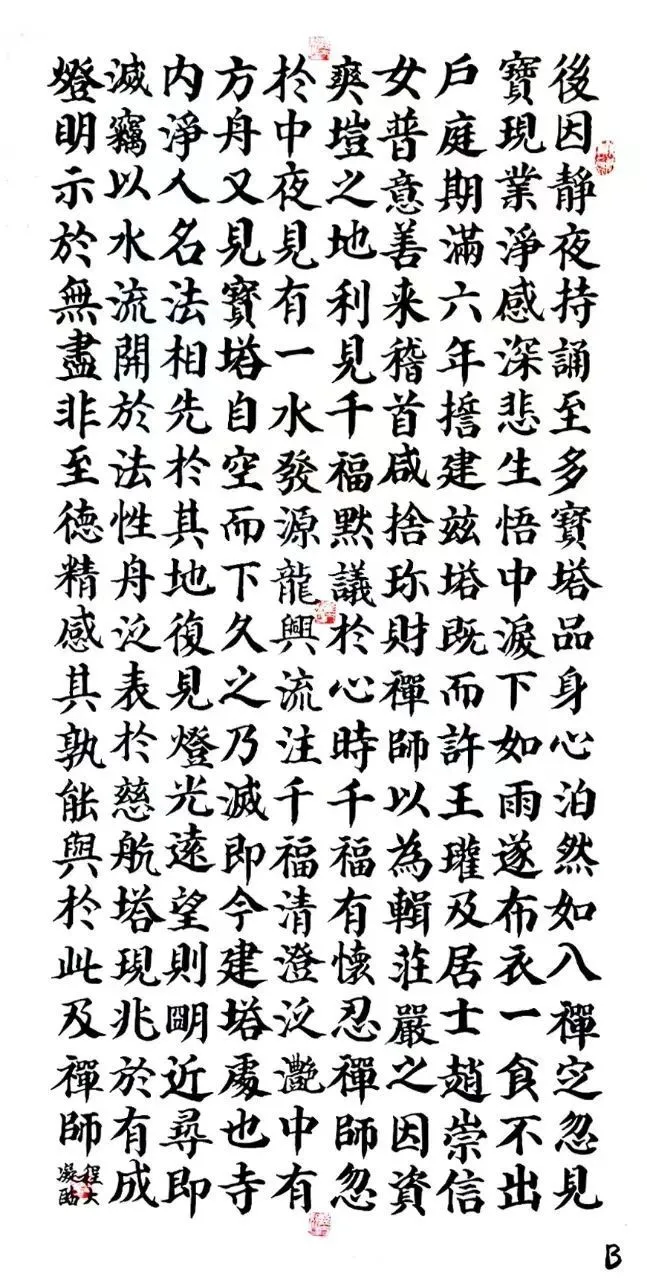 後因靜夜持誦至多寶塔品身心泊然如入禪定忽見
寶現業淨感深悲生悟中淚下如雨遂布衣一食不出
戶庭期滿六年誓建茲塔既而許王瓘及居士趙崇信
女普意善来稽首咸捨珎財禪師以為輯莊嚴之因資
爽塏之地利見千福默議於心時千福有懷忍禪師忽
於中夜見有一水發源龍興流注千福清澄泛灧中有
方舟又見寶塔自空而下久之乃滅即今建塔處也寺
内淨人名法相先於其地復見燈光遠望則明近尋即
滅竊以水流開於法性舟泛表於慈航塔現兆於有成
燈明示於無盡非至德精感其孰能與於此及禪師
B